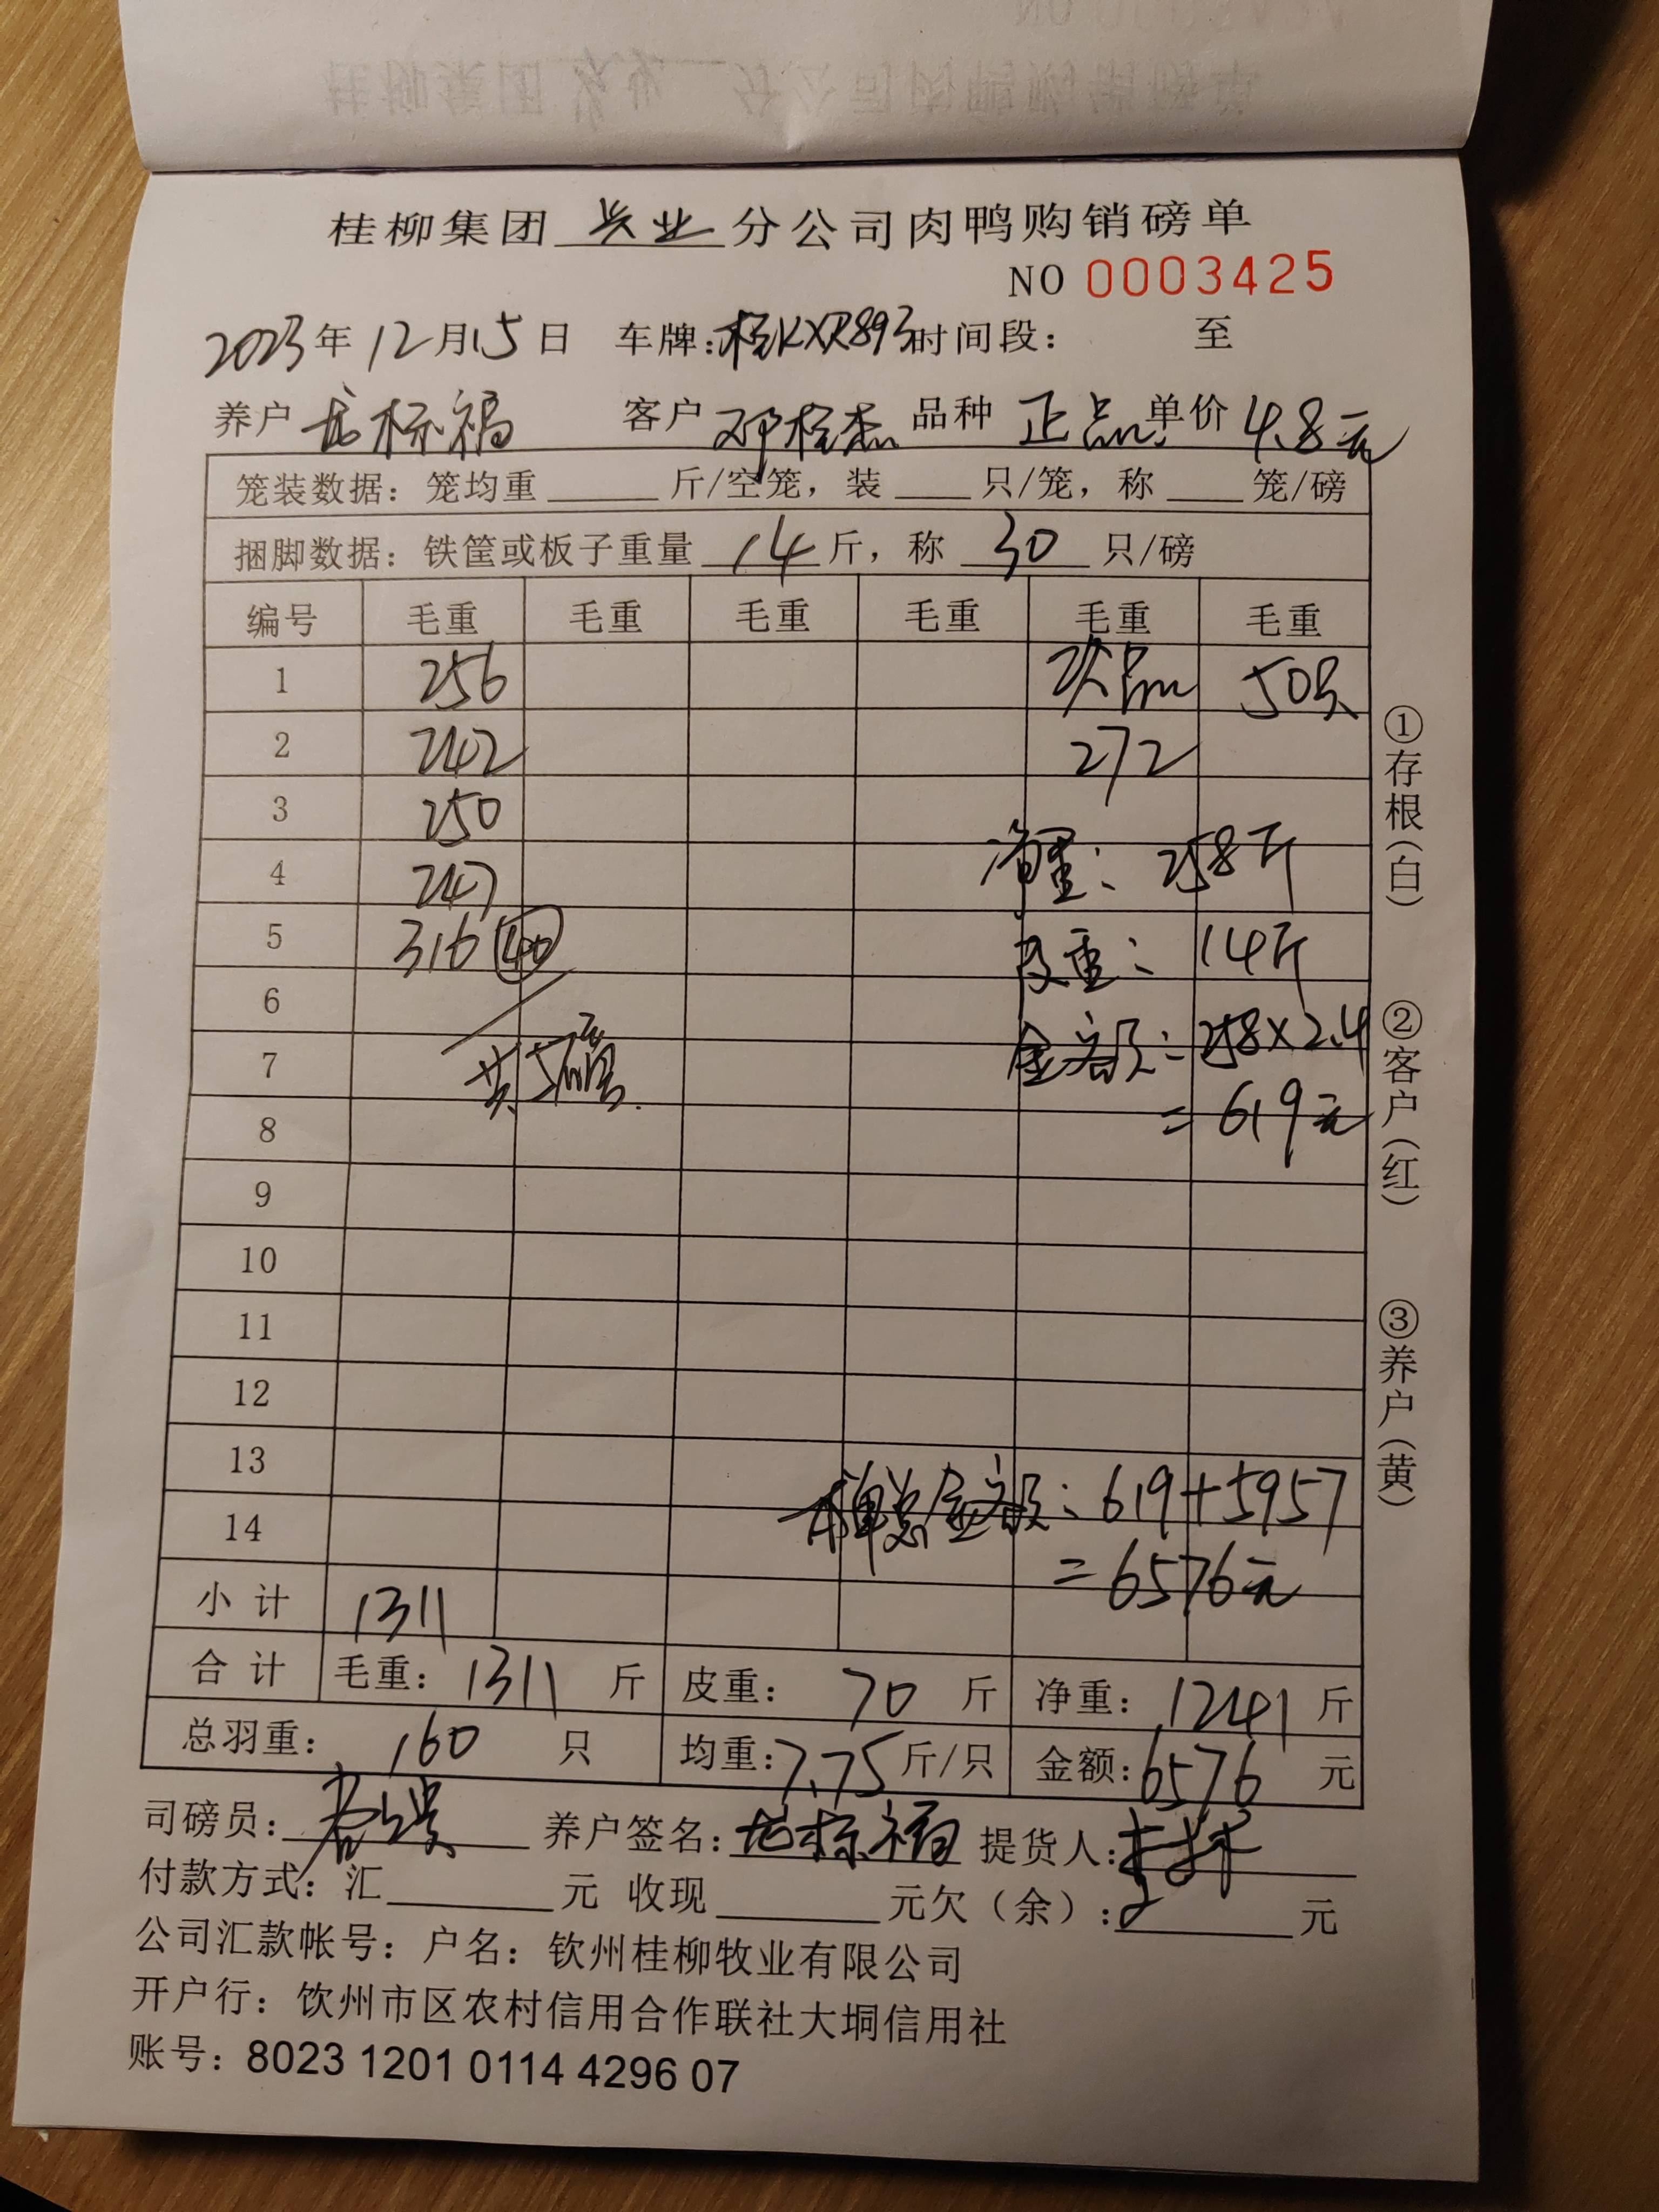 桂柳集团 兴业 分公司肉鸭购销磅单
NO 0003425
2023年12月15日 车牌:桂KXR893 时间段: 至
养户 龙标福 客户 邓桂杰 品种 正品 单价 4.8元
笼装数据:笼均重 斤/空笼,装 只/笼,称 笼/磅
捆脚数据:铁筐或板子重量 14 斤,称 30 只/磅
编号 毛重 毛重 毛重 毛重 毛重 毛重
1 256 次品 50只
2 242 272
3 250
4 247 净重:258斤
5 316 40 皮重:14斤
6
7 共5磅 金额:258×2.4
8 =619元
9
10
11
12
13 本单总金额:619+5957
14 =6576元
小计 1311
合计 毛重:1311 斤 皮重: 70 斤 净重:1241 斤
总羽重: 160 只 均重:7.75斤/只 金额:6576 元
司磅员: 养户签名:龙标福 提货人:
付款方式:汇 元 收现 元欠(余): 元
公司汇款帐号:户名:钦州桂柳牧业有限公司
开户行:饮州市区农村信用合作联社大垌信用社
账号:8023 1201 0114 4296 07
①存根(白)
②客户(红)
③养户(黄)